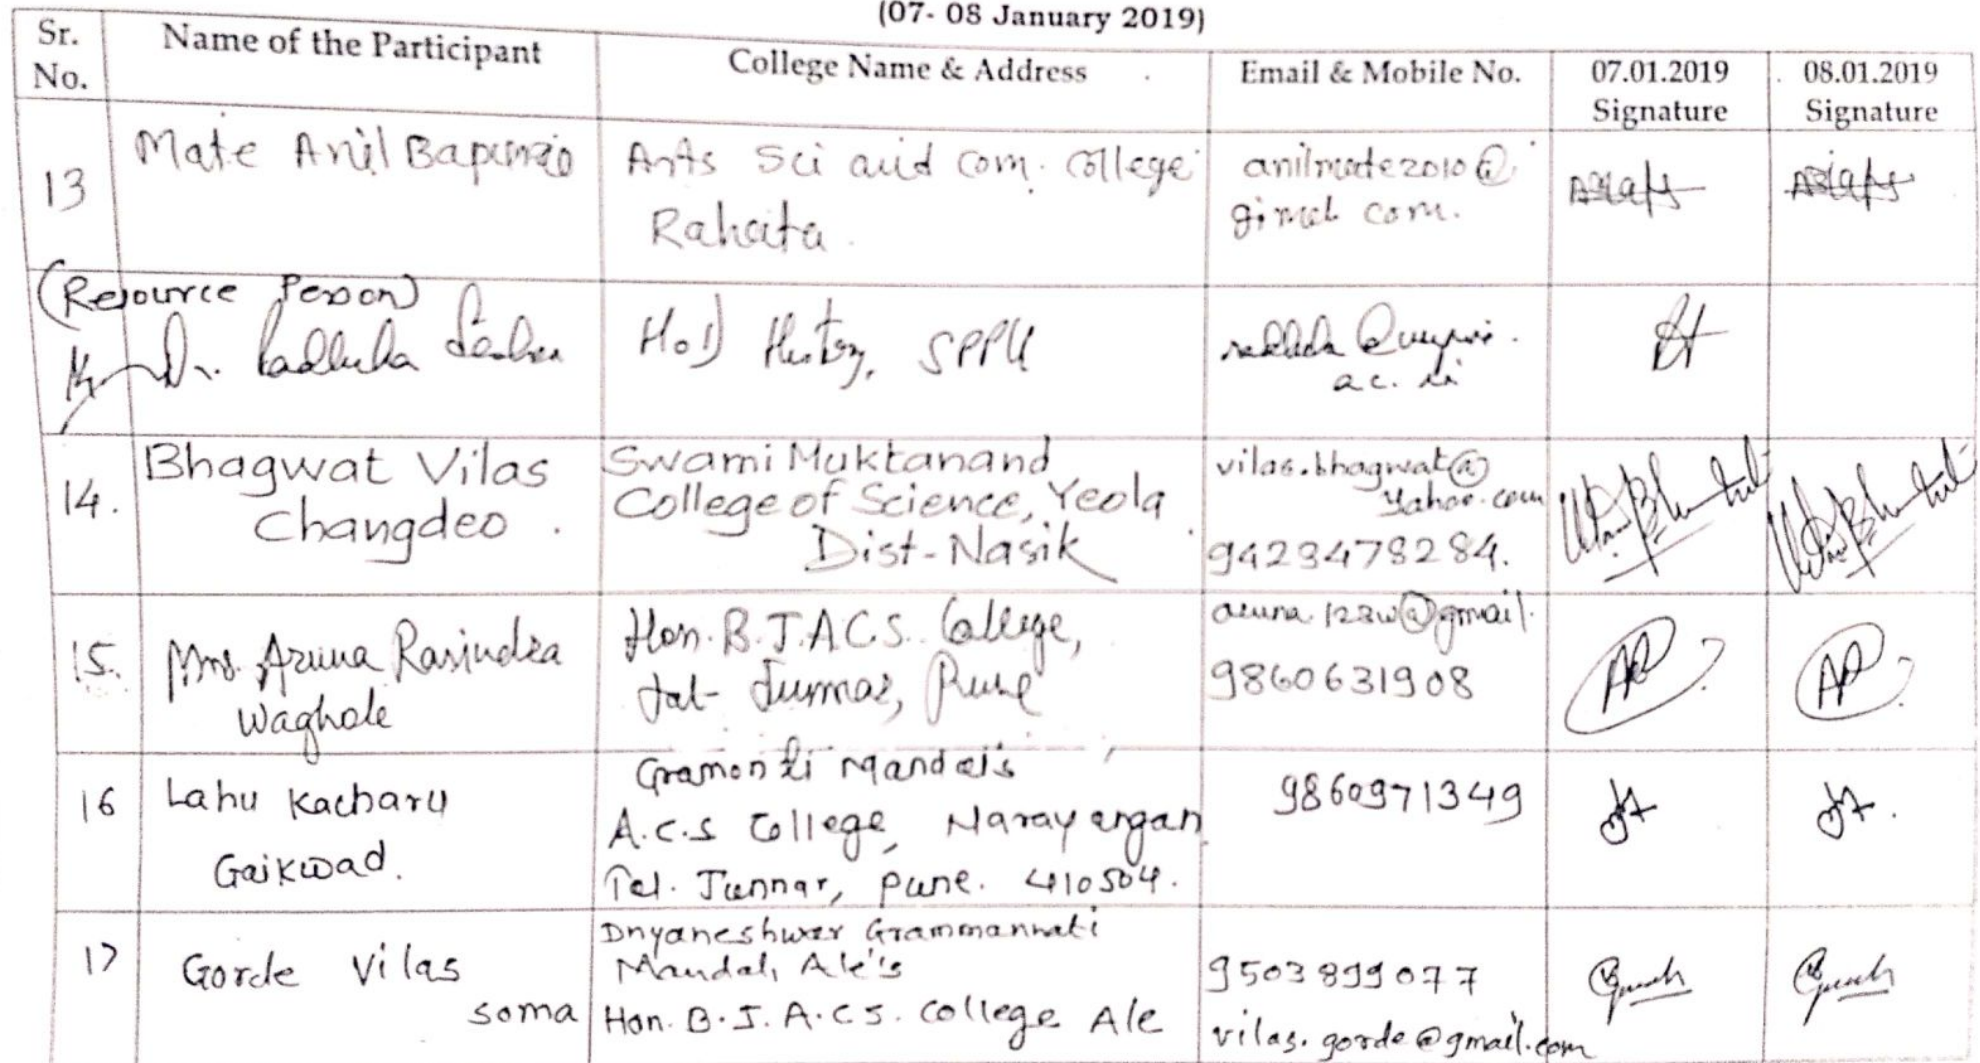 (07- 08 January 2019)
Sr. No.
Name of the Participant
College Name & Address
Email & Mobile No.
07.01.2019
Signature
08.01.2019
Signature
13
Mate Anil Bapurao
Arts Sci and com. College
Rahata
anilmate2010@
gimel com.
(Resource Person)
Dr.
HoD History, SPPU
ac. in
14.
Bhagwat Vilas
Changdeo.
Swami Muktanand
College of Science, Yeola
Dist-Nasik
vilas.bhagwat@
yahoo.com
9423478284.
15.
Mrs. Aruna Ravindra
Waghole
Hon. B.J.A.C.S. College,
Tal- Junnar, Pune
aruna.123w@gmail.
9860631908
16
Lahu Kacharu
Gaikwad.
Gramonti Mandal's
A.C.S College, Narayangan
Tal. Junnar, pune. 410504.
9860971349
17
Gorde Vilas
soma
Dnyaneshwar Grammannati
Mandal, Ale's
Hon. B.J.A.C.S. College Ale
9503899077
vilas.gorde@gmail.com